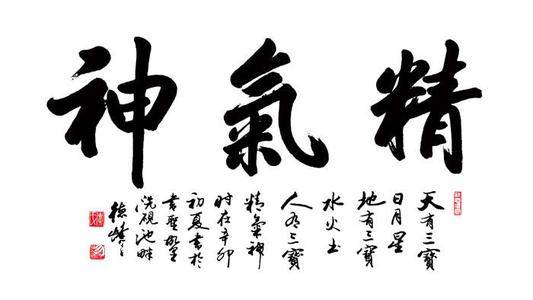 精氣神
天有三寶
日月星
地有三寶
水火土
人有三寶
精氣神
时在辛卯
初夏書於
書聖故里
洗硯池畔